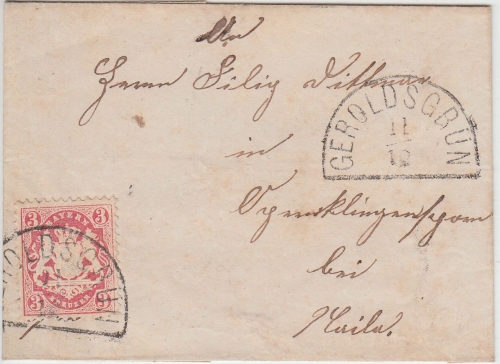 An
Herrn Filip Dittmar
in
bei
Naila.
GEROLDSGRÜN
11
12
3 BAYERN 3
3 KREUZER 3